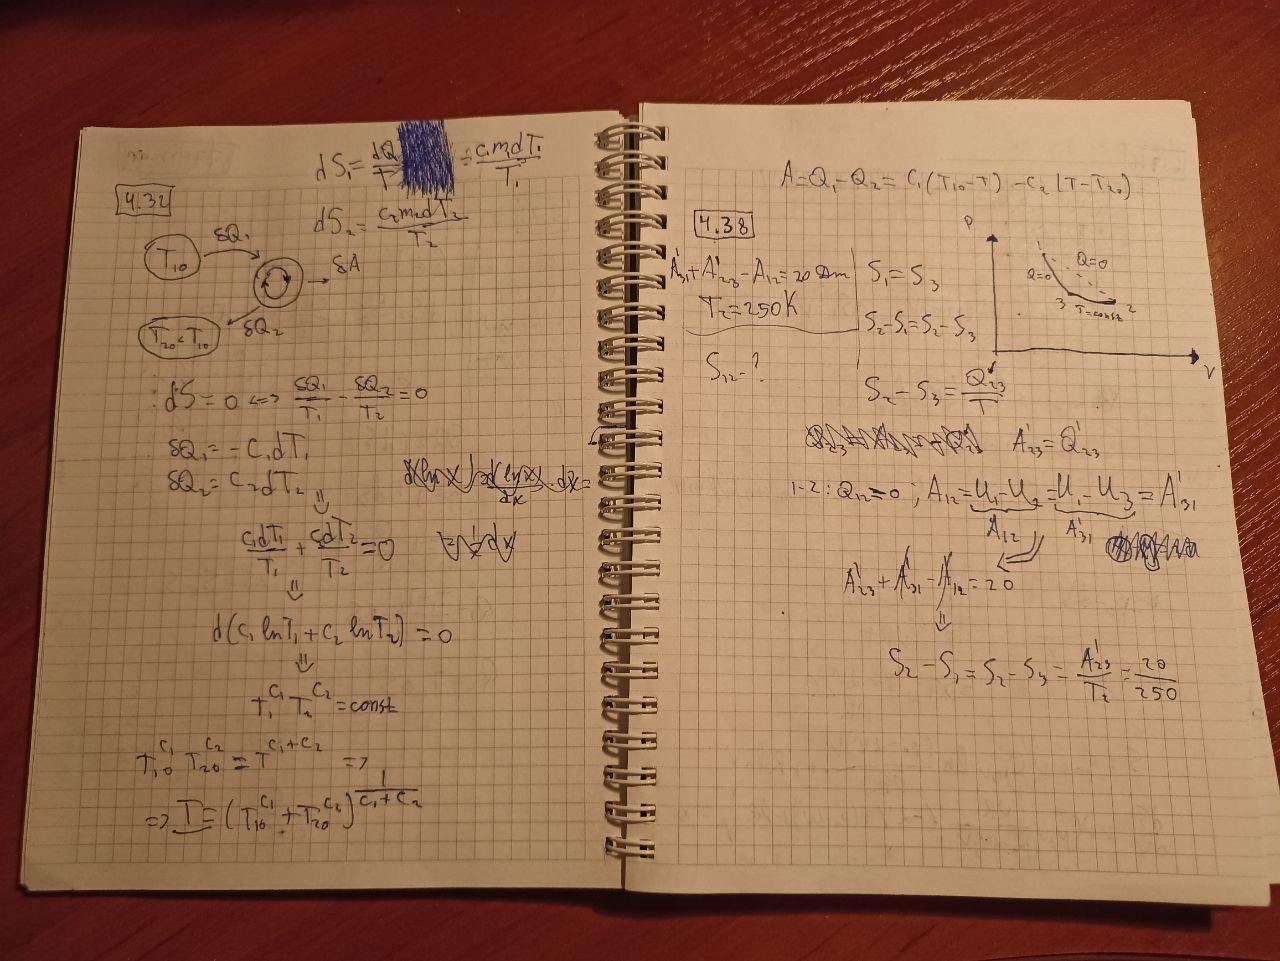 dS₁ = dQ/T = c₁m₁dT₁/T₁
4.32
dS₂ = c₂m₂dT₂/T₂
T₁₀ δQ₁
δA
T₂₀ < T₁₀ δQ₂
dS = 0 <=> δQ₁/T₁ - δQ₂/T₂ = 0
δQ₁ = -C₁dT₁
δQ₂ = C₂dT₂
⇓
c₁dT₁/T₁ + c₂dT₂/T₂ = 0
⇓
d(c₁ lnT₁ + c₂ lnT₂) = 0
⇓
T₁^C₁ T₂^C₂ = const
T₁₀^C₁ T₂₀^C₂ = T^(C₁+C₂) =>
=> T = (T₁₀^C₁ + T₂₀^C₂)^(1/(C₁+C₂))
A = Q₁ - Q₂ = C₁(T₁₀-T) - C₂(T-T₂₀)
4.38
A'₃₁ + A'₂₃ - A₁₂ = 20 Дж
T₂ = 250K
S₁₂ - ?
S₁ = S₃
S₂ - S₁ = S₂ - S₃
S₂ - S₃ = Q₂₃/T
P
1
Q=0
Q=0
3 T=const 2
V
A'₂₃ = Q'₂₃
1-2: Q₁₂ = 0; A₁₂ = U₁ - U₂ = U₁ - U₃ = A'₃₁
A₁₂ A'₃₁
A'₂₃ + A'₃₁ - A₁₂ = 20
⇓
S₂ - S₁ = S₂ - S₃ = A'₂₃/T₂ = 20/250